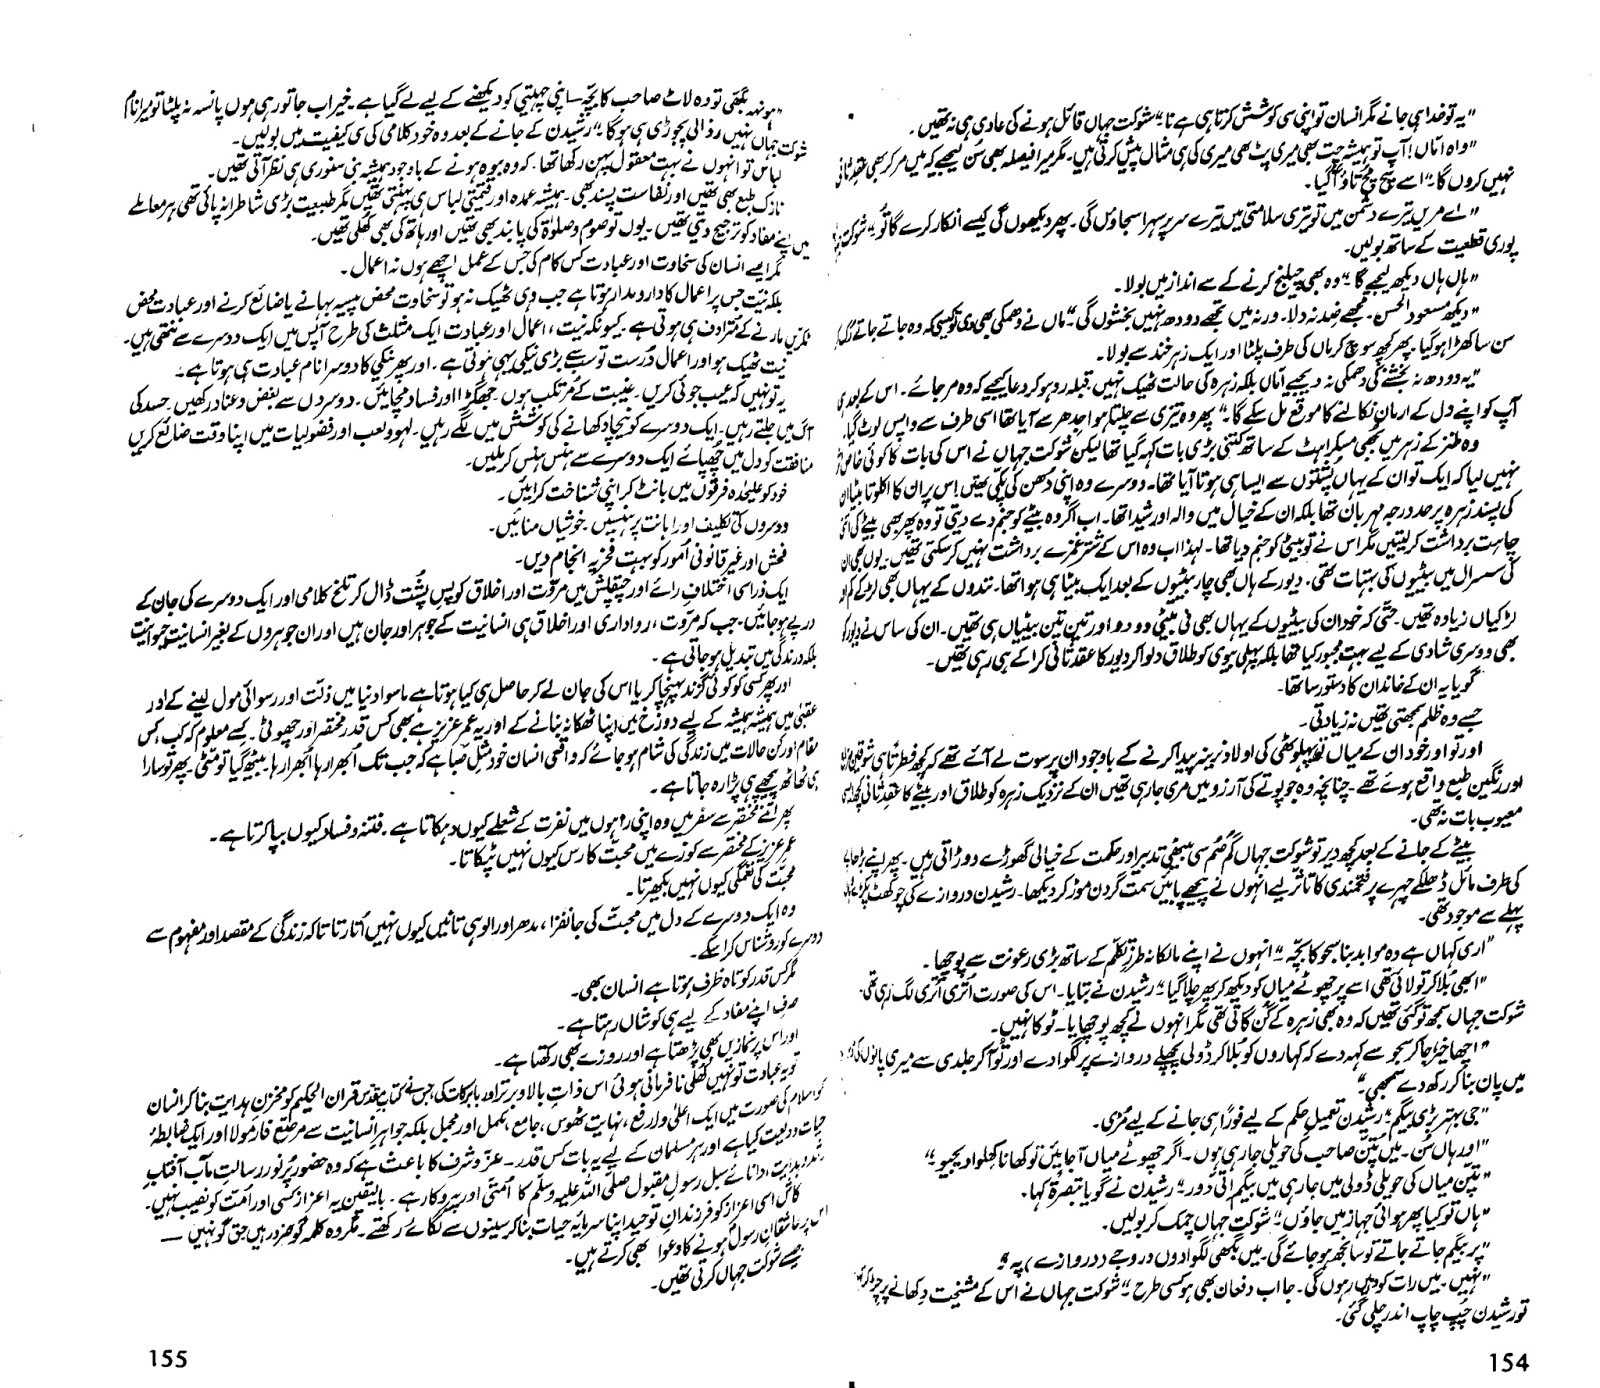 "یہ تو خدا ہی جانے مگر انسان تو اپنی سی کوشش کرتا ہی ہے نا" شوکت جہاں قائل ہونے کی عادی ہی نہ تھیں۔
"واہ اماں! آپ تو ہمیشہ چت بھی میری پٹ بھی میری کی ہی مثال پیش کرتی ہیں۔ مگر میرا فیصلہ بھی سن لیجیے کہ میں مر کر بھی عقدِ ثانی
نہیں کروں گا۔" اسے سچ مچ تاؤ آگیا۔
"اے مریں تیرے دشمن میں تو تیری سلامتی میں تیرے سر پر سہرا سجاؤں گی۔ پھر دیکھوں گی کیسے انکار کرے گا تو" شوکت
پوری قطعیت کے ساتھ بولیں۔
"ہاں ہاں دیکھ لیجیے گا" وہ بھی چیلنج کرنے کے سے انداز میں بولا۔
"دیکھ مسعود الحسن۔ مجھے ضد نہ دلا۔ ورنہ میں تجھے دودھ نہیں بخشوں گی" ماں نے دھمکی بھی دی تو کیسی کہ وہ جاتے جاتے
سن سا کھڑا ہوگیا۔ پھر کچھ سوچ کر ماں کی طرف پلٹا اور ایک زہر خند سے بولا۔
"یہ دودھ نہ بخشنے کی دھمکی نہ دیجیے اماں بلکہ زہرہ کی حالت ٹھیک نہیں قبلہ رو ہو کر دعا کیجیے کہ وہ مر جائے۔ اس کے بعد ہی
آپ کو اپنے دل کے ارمان نکالنے کا موقع مل سکے گا۔" پھر وہ تیزی سے چلتا ہوا جدھر سے آیا تھا اسی طرف سے واپس لوٹ گیا۔
وہ طنز کے زہر میں بجھی مسکراہٹ کے ساتھ کتنی بڑی بات کہہ گیا تھا لیکن شوکت جہاں نے اس کی بات کا کوئی خاص
نہیں لیا کہ ایک تو ان کے یہاں پشتوں سے ایسا ہی ہوتا آیا تھا۔ دوسرے وہ اپنی دھن کی پکی تھیں اس پر ان کا اکلوتا بیٹا ان
کی پسند زہرہ پر حد درجہ مہربان تھا بلکہ ان کے خیال میں والہ اور شیدا تھا۔ اب اگر وہ بیٹے کو جنم دے دیتی تو وہ پھر بھی بیٹے کی
چاہت برداشت کر لیتیں مگر اس نے تو بیٹی کو جنم دیا تھا۔ لہذا اب وہ اس کے شتر غمزے برداشت نہیں کر سکتی تھیں۔ یوں بھی ان
کی سسرال میں بیٹیوں کی بہتات تھی۔ دیور کے ہاں بھی چار بیٹیوں کے بعد ایک بیٹا ہی ہوا تھا۔ نندوں کے یہاں بھی لڑکے کم اور
لڑکیاں زیادہ تھیں۔ حتیٰ کہ خود ان کی بیٹیوں کے یہاں بھی فی بیٹی دو دو اور تین تین بیٹیاں ہی تھیں۔ ان کی ساس نے دیور کو
بھی دوسری شادی کے لیے بہت مجبور کیا تھا بلکہ پہلی بیوی کو طلاق دلوا کر دیور کا عقدِ ثانی کرا کے ہی رہی تھیں۔
گویا یہ ان کے خاندان کا دستور سا تھا۔
جسے وہ ظلم سمجھتی تھیں نہ زیادتی۔
اور تو اور خود ان کے میاں تو پہلوٹھی کی اولاد نرینہ پیدا کرنے کے باوجود ان پر سوت لے آئے تھے کہ کچھ فطرتاً ہی شوقین
اور رنگین طبع واقع ہوئے تھے۔ چنانچہ وہ جو پوتے کی آرزو میں مری جا رہی تھیں ان کے نزدیک زہرہ کو طلاق اور بیٹے کا عقدِ ثانی کچھ ایسی
معیوب بات نہ تھی۔
بیٹے کے جانے کے بعد کچھ دیر تو شوکت جہاں گم صم سی بیٹھی تدبیر اور حکمت کے خیالی گھوڑے دوڑاتی رہیں۔ پھر اپنے بڑھاپے
کی طرف مائل ڈھلکے چہرے پر فتحمندی کا تاثر لیے انہوں نے پیچھے بائیں سمت گردن موڑ کر دیکھا۔ رشیدن دروازے کی چوکھٹ پکڑے
پہلے سے موجود تھی۔
"اری کہاں ہے وہ موا بدبنا سجو کا بچہ" انہوں نے اپنے مالکانہ طرزِ تکلم کے ساتھ بڑی رعونت سے پوچھا۔
"ابھی بلا کر تو لائی تھی اسے پر چھوٹے میاں کو دیکھ کر پھر چلا گیا" رشیدن نے بتایا۔ اس کی صورت اتری اتری لگ رہی تھی۔
شوکت جہاں سمجھ تو گئی تھیں کہ وہ بھی زہرہ کے گن گاتی تھی مگر انہوں نے کچھ پوچھا یا۔ ٹوکا نہیں۔
"اچھا خیر جا کر سجو سے کہہ دے کہ کہاروں کو بلا کر ڈولی پچھلے دروازے پر لگوا دے اور تو آکر جلدی سے میری پانوں کی
میں پان بنا کر رکھ دے سمجھی۔"
"جی بہتر بڑی بیگم" رشیدن تعمیلِ حکم کے لیے فوراً ہی جانے کے لیے مڑی۔
"اور ہاں سن۔ میں ببّن صاحب کی حویلی جا رہی ہوں۔ اگر چھوٹے میاں آجائیں تو کھانا کھلوا دیجیو"
"ببّن میاں کی حویلی ڈولی میں جا رہی ہیں بیگم اتی دور" رشیدن نے گویا تبصرہ کہا۔
"ہاں تو کیا پھر ہوائی جہاز میں جاؤں" شوکت جہاں چمک کر بولیں۔
"پر بیگم جاتے جاتے تو سانجھ ہو جائے گی۔ میں بگھی لگوا دوں دروجے (دروازے) پہ"
"نہیں۔ میں رات کو وہیں رہوں گی۔ جا اب دفعان بھی ہو کسی طرح" شوکت جہاں نے اس کے مشیخت دکھانے پر
تو رشیدن چپ چاپ اندر چلی گئی۔
154
"ہونہہ بگھی تو وہ لاٹ صاحب کا بچہ اپنی چہیتی کو دیکھنے کے لیے لے گیا ہے۔ خیر اب جا تو رہی ہوں پانسہ نہ پلٹا تو میرا نام
شوکت جہاں نہیں رذالی چوڑی ہی ہوگا۔" رشیدن کے جانے کے بعد وہ خود کلامی کی سی کیفیت میں بولیں۔
لباس تو انہوں نے بہت معقول پہن رکھا تھا۔ کہ وہ بیوہ ہونے کے باوجود ہمیشہ بنی سنوری ہی نظر آتی تھیں۔
نازک طبع بھی تھیں اور نفاست پسند بھی۔ ہمیشہ عمدہ اور قیمتی لباس ہی پہنتی تھیں مگر طبیعت بڑی شاطرانہ پائی تھی ہر معاملے
میں اپنے مفاد کو ترجیح دیتی تھیں۔ یوں تو صوم و صلوٰۃ کی پابند بھی تھیں اور ہاتھ کی بھی کھلی تھیں۔
مگر ایسے انسان کی سخاوت اور عبادت کس کام کی جس کے عمل اچھے ہوں نہ اعمال۔
بلکہ نیت جس پر اعمال کا دارومدار ہوتا ہے جب وہی ٹھیک نہ ہو تو سخاوت محض پیسہ بہانے یا ضائع کرنے اور عبادت محض
ٹکریں مارنے کے مترادف ہی ہوتی ہے۔ کیونکہ نیت، اعمال اور عبادت ایک مثلث کی طرح آپس میں ایک دوسرے سے نتھی ہیں۔
نیت ٹھیک ہو اور اعمال درست تو سب سے بڑی نیکی یہی ہوتی ہے۔ اور پھر نیکی کا دوسرا نام عبادت ہی ہوتا ہے۔
یہ تو نہیں کہ عیب جوئی کریں۔ غیبت کے مرتکب ہوں۔ جھگڑا اور فساد مچائیں۔ دوسروں سے بغض و عناد رکھیں۔ حسد کی
آگ میں جلتے رہیں۔ ایک دوسرے کو نیچا دکھانے کی کوشش میں لگے رہیں۔ لہو و لعب اور فضولیات میں اپنا وقت ضائع کریں
منافقت کو دل میں چھپائے ایک دوسرے سے ہنس ہنس کر ملیں۔
خود کو علیحدہ فرقوں میں بانٹ کر اپنی شناخت کرائیں۔
دوسروں کی تکلیف اور اہانت پر ہنسیں۔ خوشیاں منائیں۔
فحش اور غیر قانونی امور کو بہت فخریہ انجام دیں۔
ایک ذرا سی اختلافِ رائے اور چپقلش میں مروت اور اخلاق کو پسِ پشت ڈال کر تلخ کلامی اور ایک دوسرے کی جان کے
درپے ہو جائیں۔ جب کہ مروت، رواداری اور اخلاق ہی انسانیت کے جوہر اور جان ہیں اور ان جوہروں کے بغیر انسانیت حیوانیت
بلکہ درندگی میں تبدیل ہو جاتی ہے۔
اور پھر کسی کو کوئی گزند پہنچا کر یا اس کی جان لے کر حاصل ہی کیا ہوتا ہے ماسوا دنیا میں ذلت اور رسوائی مول لینے کے اور
عقبیٰ میں ہمیشہ ہمیشہ کے لیے دوزخ میں اپنا ٹھکانہ بنانے کے اور یہ عمرِ عزیز ہے بھی کس قدر مختصر اور چھوٹی۔ کسے معلوم کہ کب کس
مقام اور کن حالات میں زندگی کی شام ہو جائے کہ واقعی انسان خود مثلِ صبا ہے کہ جب تک ابھرا رہا ابھرا رہا۔ بیٹھ گیا تو مٹی پھر تو سارا
ہی ٹھاٹھ پیچھے ہی پڑا رہ جاتا ہے۔
پھر اتنے مختصر سے سفر میں وہ اپنی راہوں میں نفرت کے شعلے کیوں دہکاتا ہے۔ فتنہ و فساد کیوں بپا کرتا ہے۔
عمرِ عزیز کے مختصر سے کوزے میں محبت کا رس کیوں نہیں ٹپکاتا۔
محبت کی نغمگی کیوں نہیں بکھیرتا۔
وہ ایک دوسرے کے دل میں محبت کی جانفزا، مدھر اور الوہی تانیں کیوں نہیں اتارتا تاکہ زندگی کے مقصد اور مفہوم سے
دوسرے کو روشناس کرا سکے۔
مگر کس قدر کوتاہ ظرف ہوتا ہے انسان بھی۔
صرف اپنے مفاد کے لیے ہی کوشاں رہتا ہے۔
اور اس پر نمازیں بھی پڑھتا ہے اور روزے بھی رکھتا ہے۔
تو یہ عبادت تو نہیں کھلی نافرمانی ہوئی اس ذاتِ بالا و برتر اور بابرکات کی جس نے کتابِ مقدس قرآن الحکیم کو مخزنِ ہدایت بنا کر انسان
کو اسلام کی صورت میں ایک اعلیٰ و ارفع، نہایت ٹھوس، جامع، مکمل اور مجمل بلکہ جواہرِ انسانیت سے مرصع فارمولا اور ایک ضابطۂ
حیات ودیعت کیا ہے اور ہر مسلمان کے لیے یہ بات کس قدر۔ عز و شرف کا باعث ہے کہ وہ حضور پرنور رسالت مآب آفتابِ
رشد و ہدایت، دانائے سبل رسولِ مقبول صلی اللہ علیہ وسلم کا امتی اور پیروکار ہے۔ بالیقین یہ اعزاز کسی اور امت کو نصیب نہیں۔
کاش اسی اعزاز کو فرزندانِ توحید اپنا سرمایۂ حیات بنا کر سینوں سے لگائے رکھتے۔ مگر وہ کلمہ گو ضرور ہیں حق گو نہیں —
اس پر عاشقانِ رسول ہونے کا دعوا بھی کرتے ہیں۔
جیسے شوکت جہاں کرتی تھیں۔
155